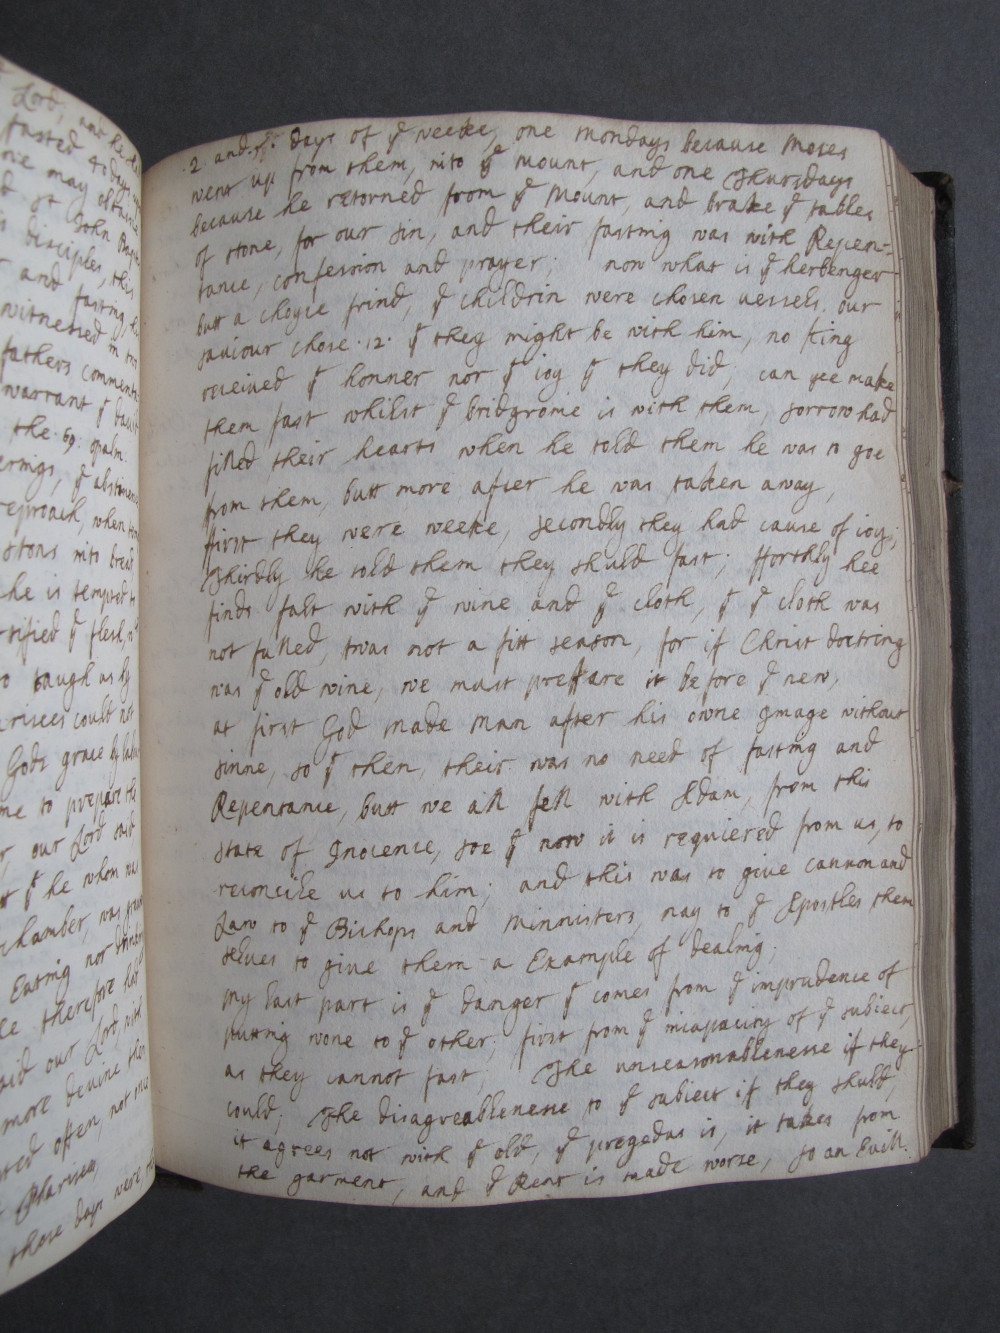 Lord, and he
fasted 40 days
one may obtaine
St John Bap
disciples, this
and fasting, he
witnessed in
fathers comments
warrant yt
the .69. psalm:
ye abstinence
reproach, when
stons into bread
he is tempted
ye flesh,
taught us by
could not
Gods grace by
me to prepare the
our Lord said,
yt he whom
chamber, was
Eating nor drinking
therefore
said our Lord,
more devine
often, not
those days were,
.2. and .5th. days of ye weeke, one Mondays because Moses
went up from them, into ye mount, and one Thursdays
because he retorned from ye Mount, and brake ye tables
of stone, for our sin, and their fasting was with Repen-
tance, confession and prayer; now what is ye herbenger
butt a choyce frind, ye childrin were chosen vessels, our
saviour chose .12. yt they might be with him, no king
received ye honner nor ye ioy yt they did; can yee make
them fast whilst ye bridgrome is with them, sorrow had
filled their hearts when he told them he was to goe
from them, butt more after he was taken away,
ffirst they were weeke, secondly they had cause of ioy;
Thirdly he told them they shuld fast; fforthly hee
finds falt with ye wine and ye cloth, yt ye cloth was
not fulled, twas not a fitt season, for if Christ doctring
was ye old wine, we must preffare it before ye new,
at first God made Man after his owne Image without
sinne, so yt then, their was no need of fasting and
Repentance, butt we all fell with Adam, from this
state of Inocence, soe yt now it is requiered from us, to
reconcile us to him; and this was to give cannon and
Law to ye Bishops and Minnisters, nay to ye Apostles them
selves to give them a Example of dealing;
my last part is ye danger yt comes from ye imprudence of
putting wone to ye other; first from ye incapacity of ye subiect,
as they cannot fast; The unseasonablenesse if they
could; The disagreablenesse to ye subiect if they shuld,
it agrees not with ye old, ye is, it takes from
the garment, and ye Rent is made worse, so an Evill.